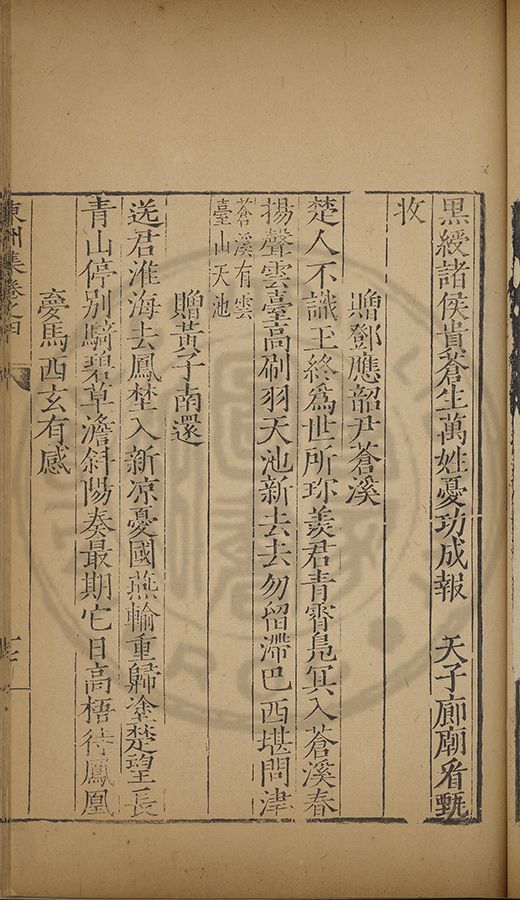 黒綬諸侯貴蒼生萬姓憂功成報　天子廊廟看甄
收
贈鄧應韶尹蒼溪
楚人不識王終爲世所珎羨君青霄舄冥入蒼溪春
揚聲雲臺高刷羽天池新去去勿留滯巴西堪問津
蒼溪有雲
臺山天池
贈黃子南還
送君淮海去鳳埜入新凉憂國燕輸重歸塗楚望長
青山停別騎碧草澹斜陽奏最期它日高梧待鳳凰
夢馬西玄有感
東洲集卷之四